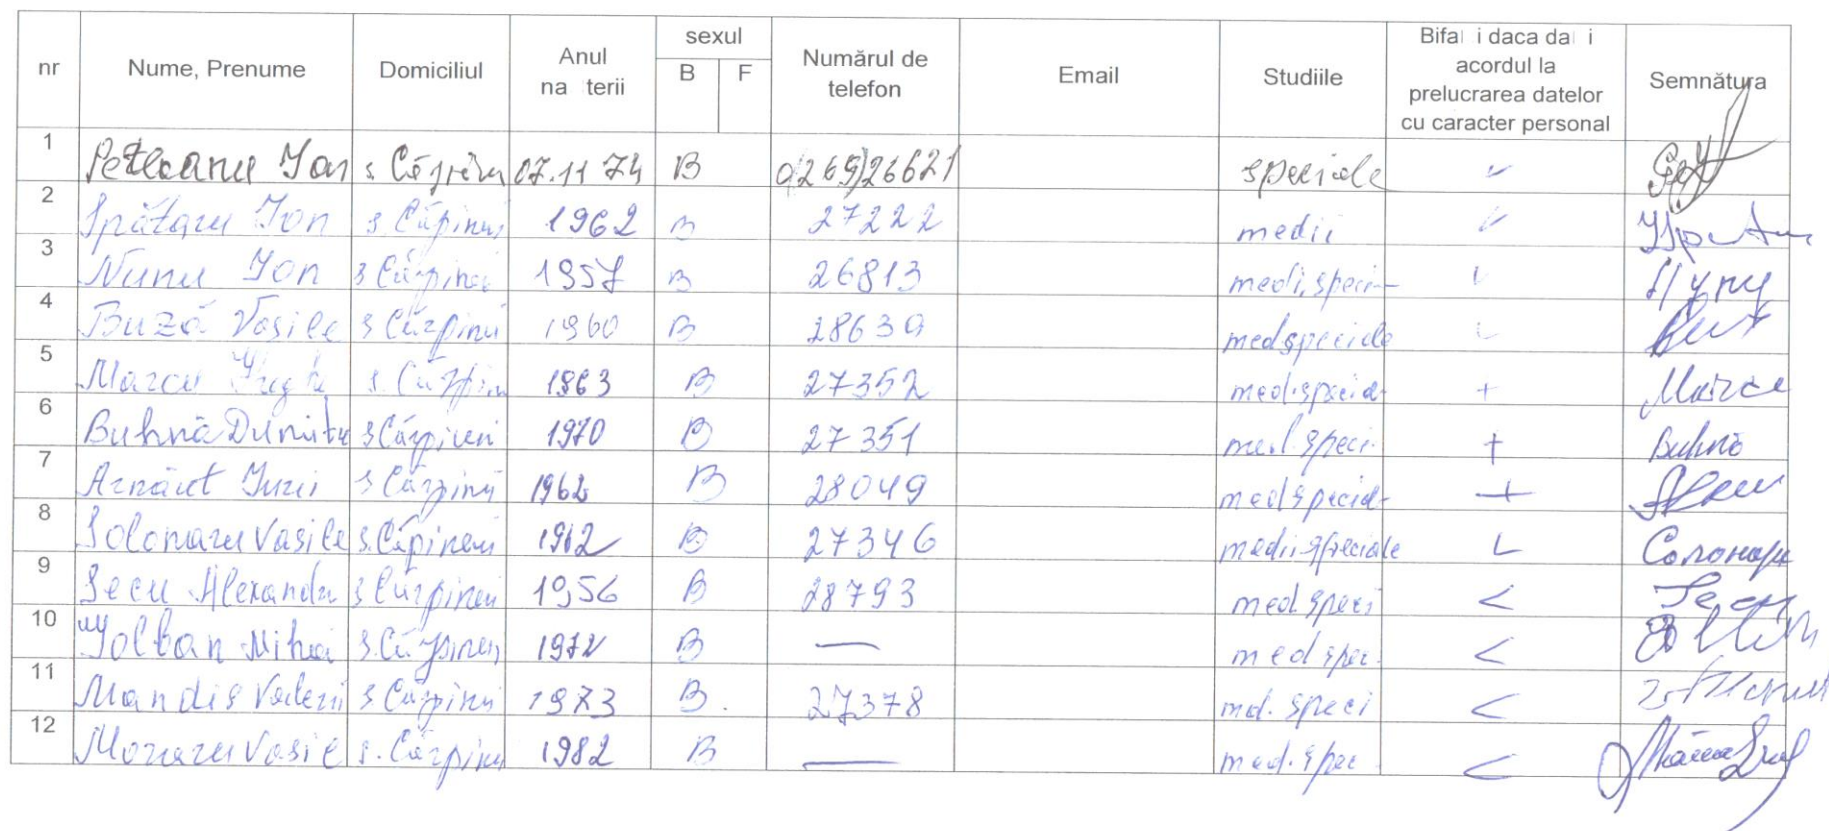 nr Nume, Prenume Domiciliul Anul na terii sexul B F Numărul de telefon Email Studiile Bifa i daca da i acordul la prelucrarea datelor cu caracter personal Semnătura
1 Petleanu Ion 07.11 74 B 0(269)26621 speciale
2 Spătaru Ion s. Cărpineni 1962 B 27222 medii
3 Nunu Ion s Cărpineni 1957 B 26813 medii, speci
4 Buză Vasile s Cărpineni 1960 B 28639 med speciale
5 Marcu s. Cărpineni 1963 B 27352 med. special + Marcu
6 Buhnă Dumitru s Cărpineni 1970 B 27351 med. speci + Buhnă
7 Arnăut Iurii s Cărpineni 1962 B 28049 med special +
8 Solonaru Vasile s. Cărpineni 1962 B 27346 medii speciale Солонару
9 Secu Alexandru s Cărpineni 1956 B 28793 med speci < Secu
10 Mihai s. Cărpineni B — med spec. <
11 Mandis Valerii s Cărpineni 1973 B. 27378 med. speci <
12 Moraru Vasile s. Cărpineni 1982 B — med. spec <